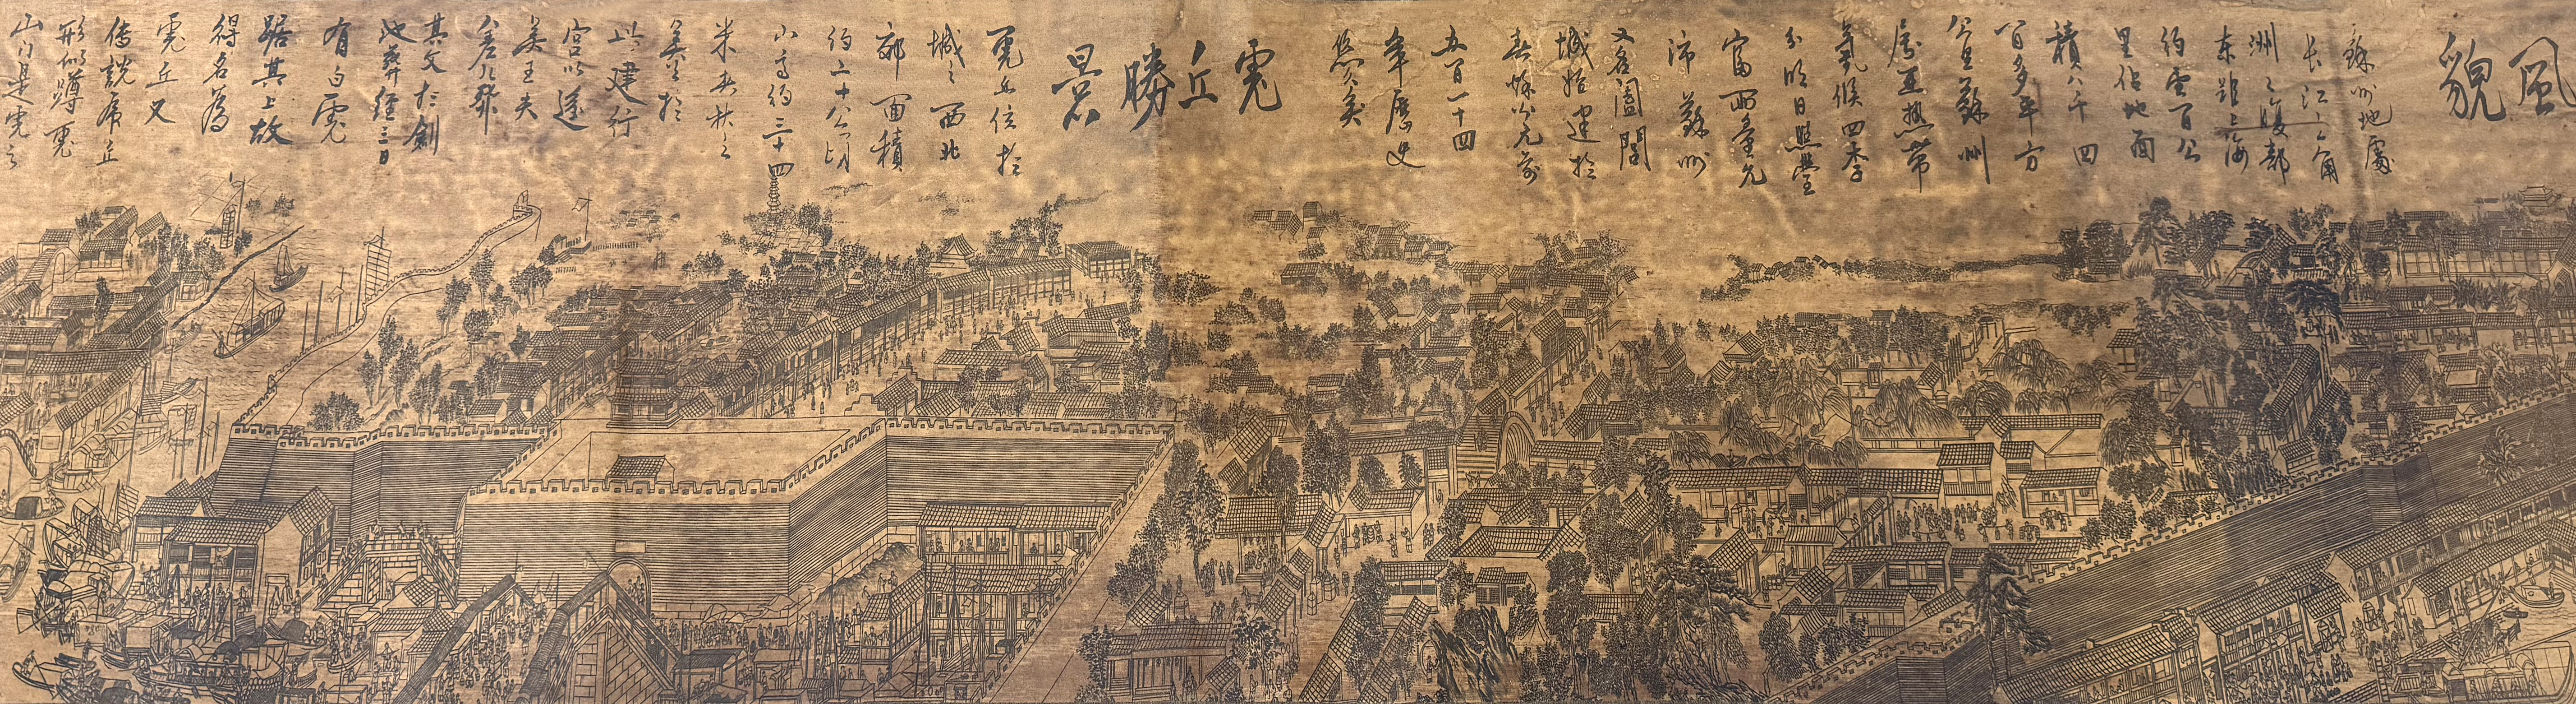 風貌
蘇州地處
长江三角
洲之腹部
东距上海
约壹百公
里佔地面
積八千四
百多平方
公里蘇州
屬亚热带
氣候四季
分明日照豐
富雨量充
沛蘇州
又名闔閭
城始建於
春秋公元前
五百一十四
年歷史
悠久矣
虎丘勝景
虎丘位於
城之西北
郊面積
约二十八公顷
山高约三十四
米春秋之
吴於
此建行
宫以遂
吴王夫
差葬
其父於劍
池葬經三日
有白虎
踞其上故
得名為
虎丘又
传說虎丘
形似蹲虎
山门是虎之